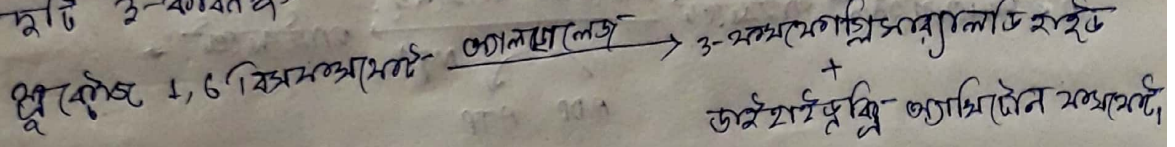 দুটি 3-
ফ্রুকটোজ 1,6 বিসফসফেট অ্যালডোলেজ → 3-ফসফোগ্লিসার্যালডিহাইড
+
ডাইহাইড্রক্সি অ্যাসিটোন ফসফেট,